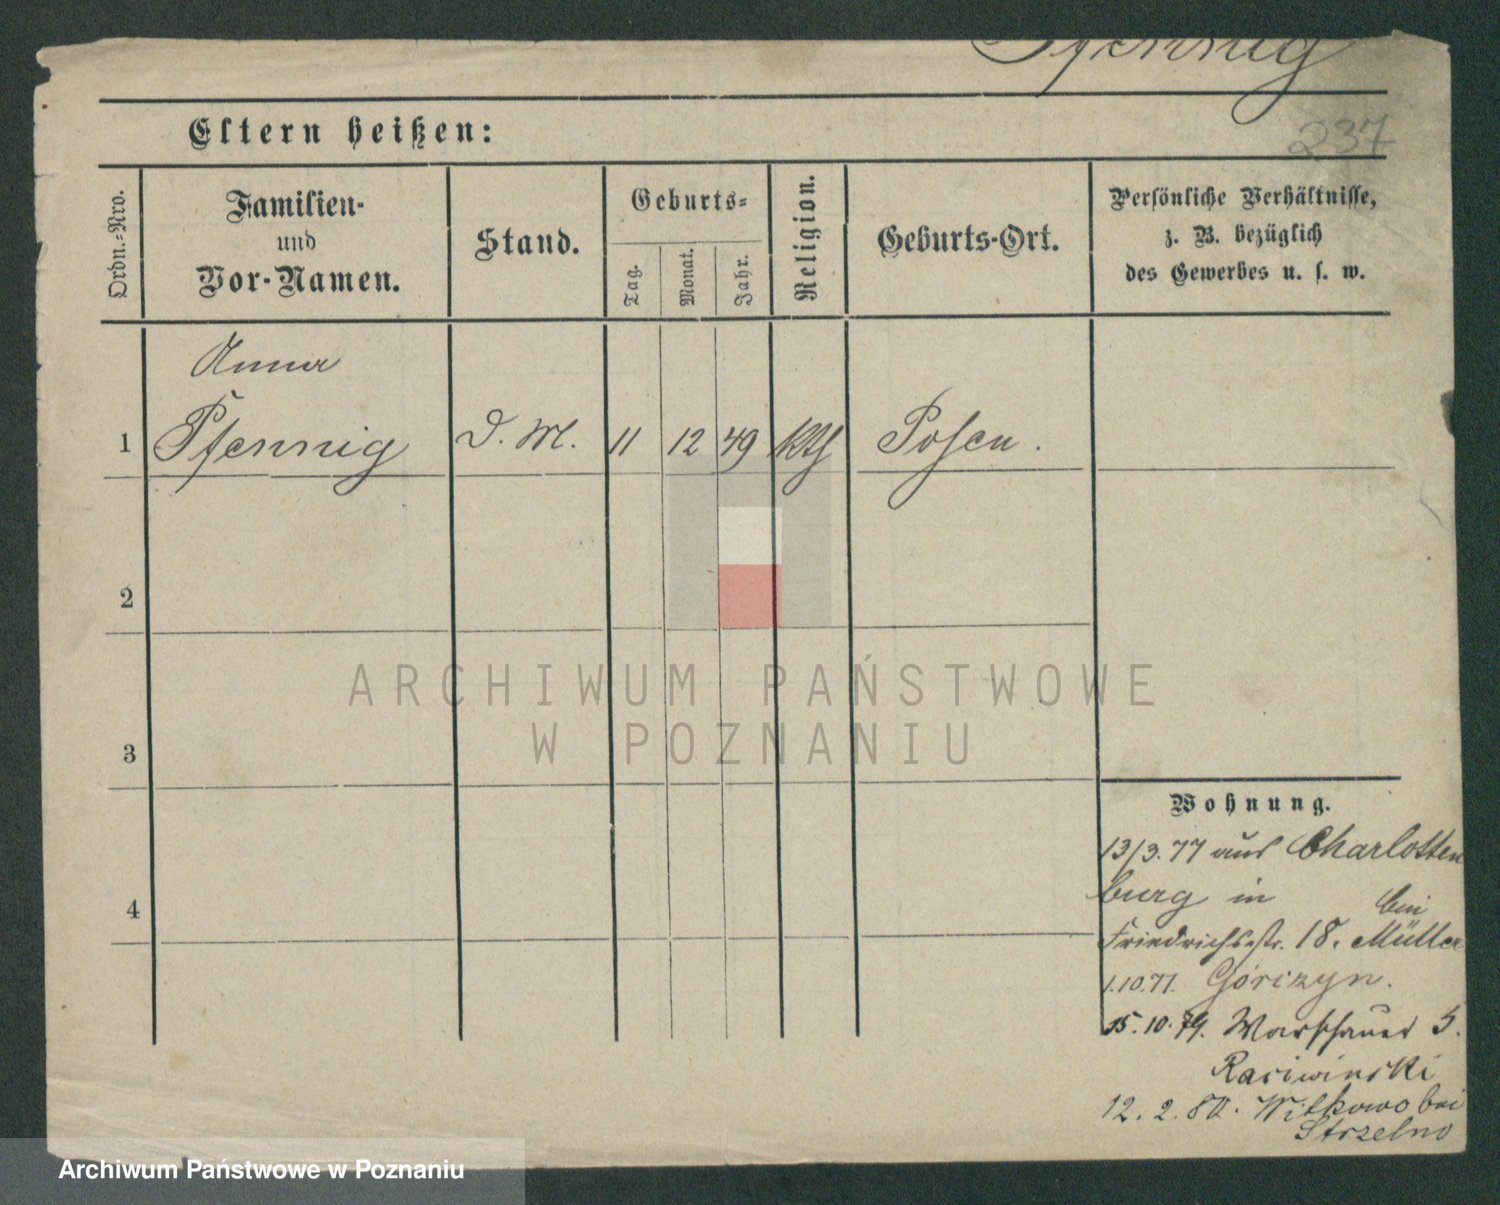 Pfennig
237
Eltern heißen:
Ordn.-Nro.
Familien-
und
Vor-Namen.
Stand.
Geburts-
Tag.
Monat.
Jahr.
Religion.
Geburts-Ort.
Persönliche Verhältnisse,
z. B. bezüglich
des Gewerbes u. s. w.
Anna
1 Pfennig D. M. 11 12 49 kth Posen.
2
3
4
ARCHIWUM PAŃSTWOWE
W POZNANIU
Wohnung.
13/3.77 aus Charlotten
burg in bei
Friedrichsstr. 18. Müller
1.10.77. Górczyn.
15.10.79. Warschauer 3.
12. 2. 80. Witkowo bei
Strzelno
Archiwum Państwowe w Poznaniu